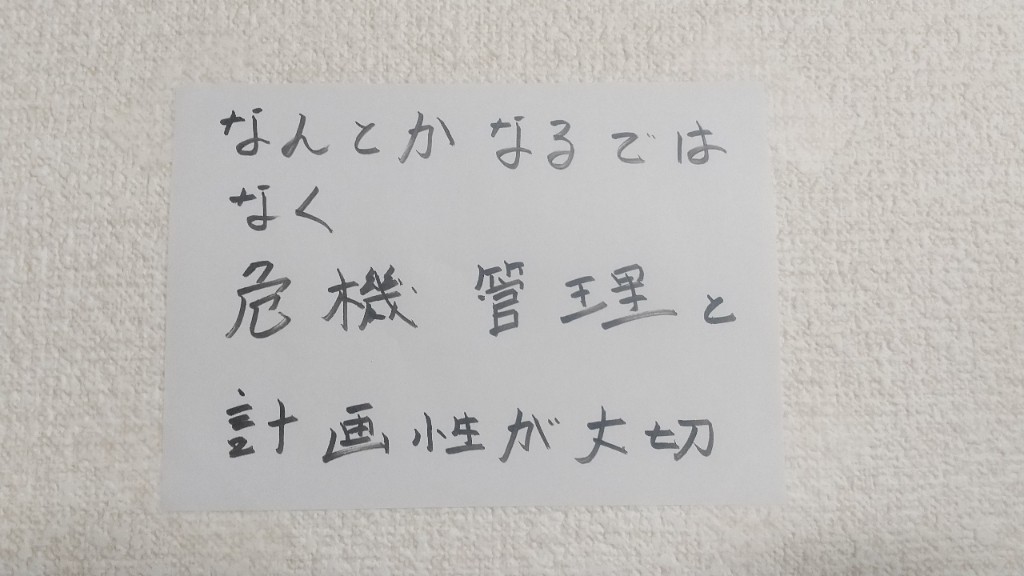 なんとかなるでは
なく
危機管理と
計画性が大切